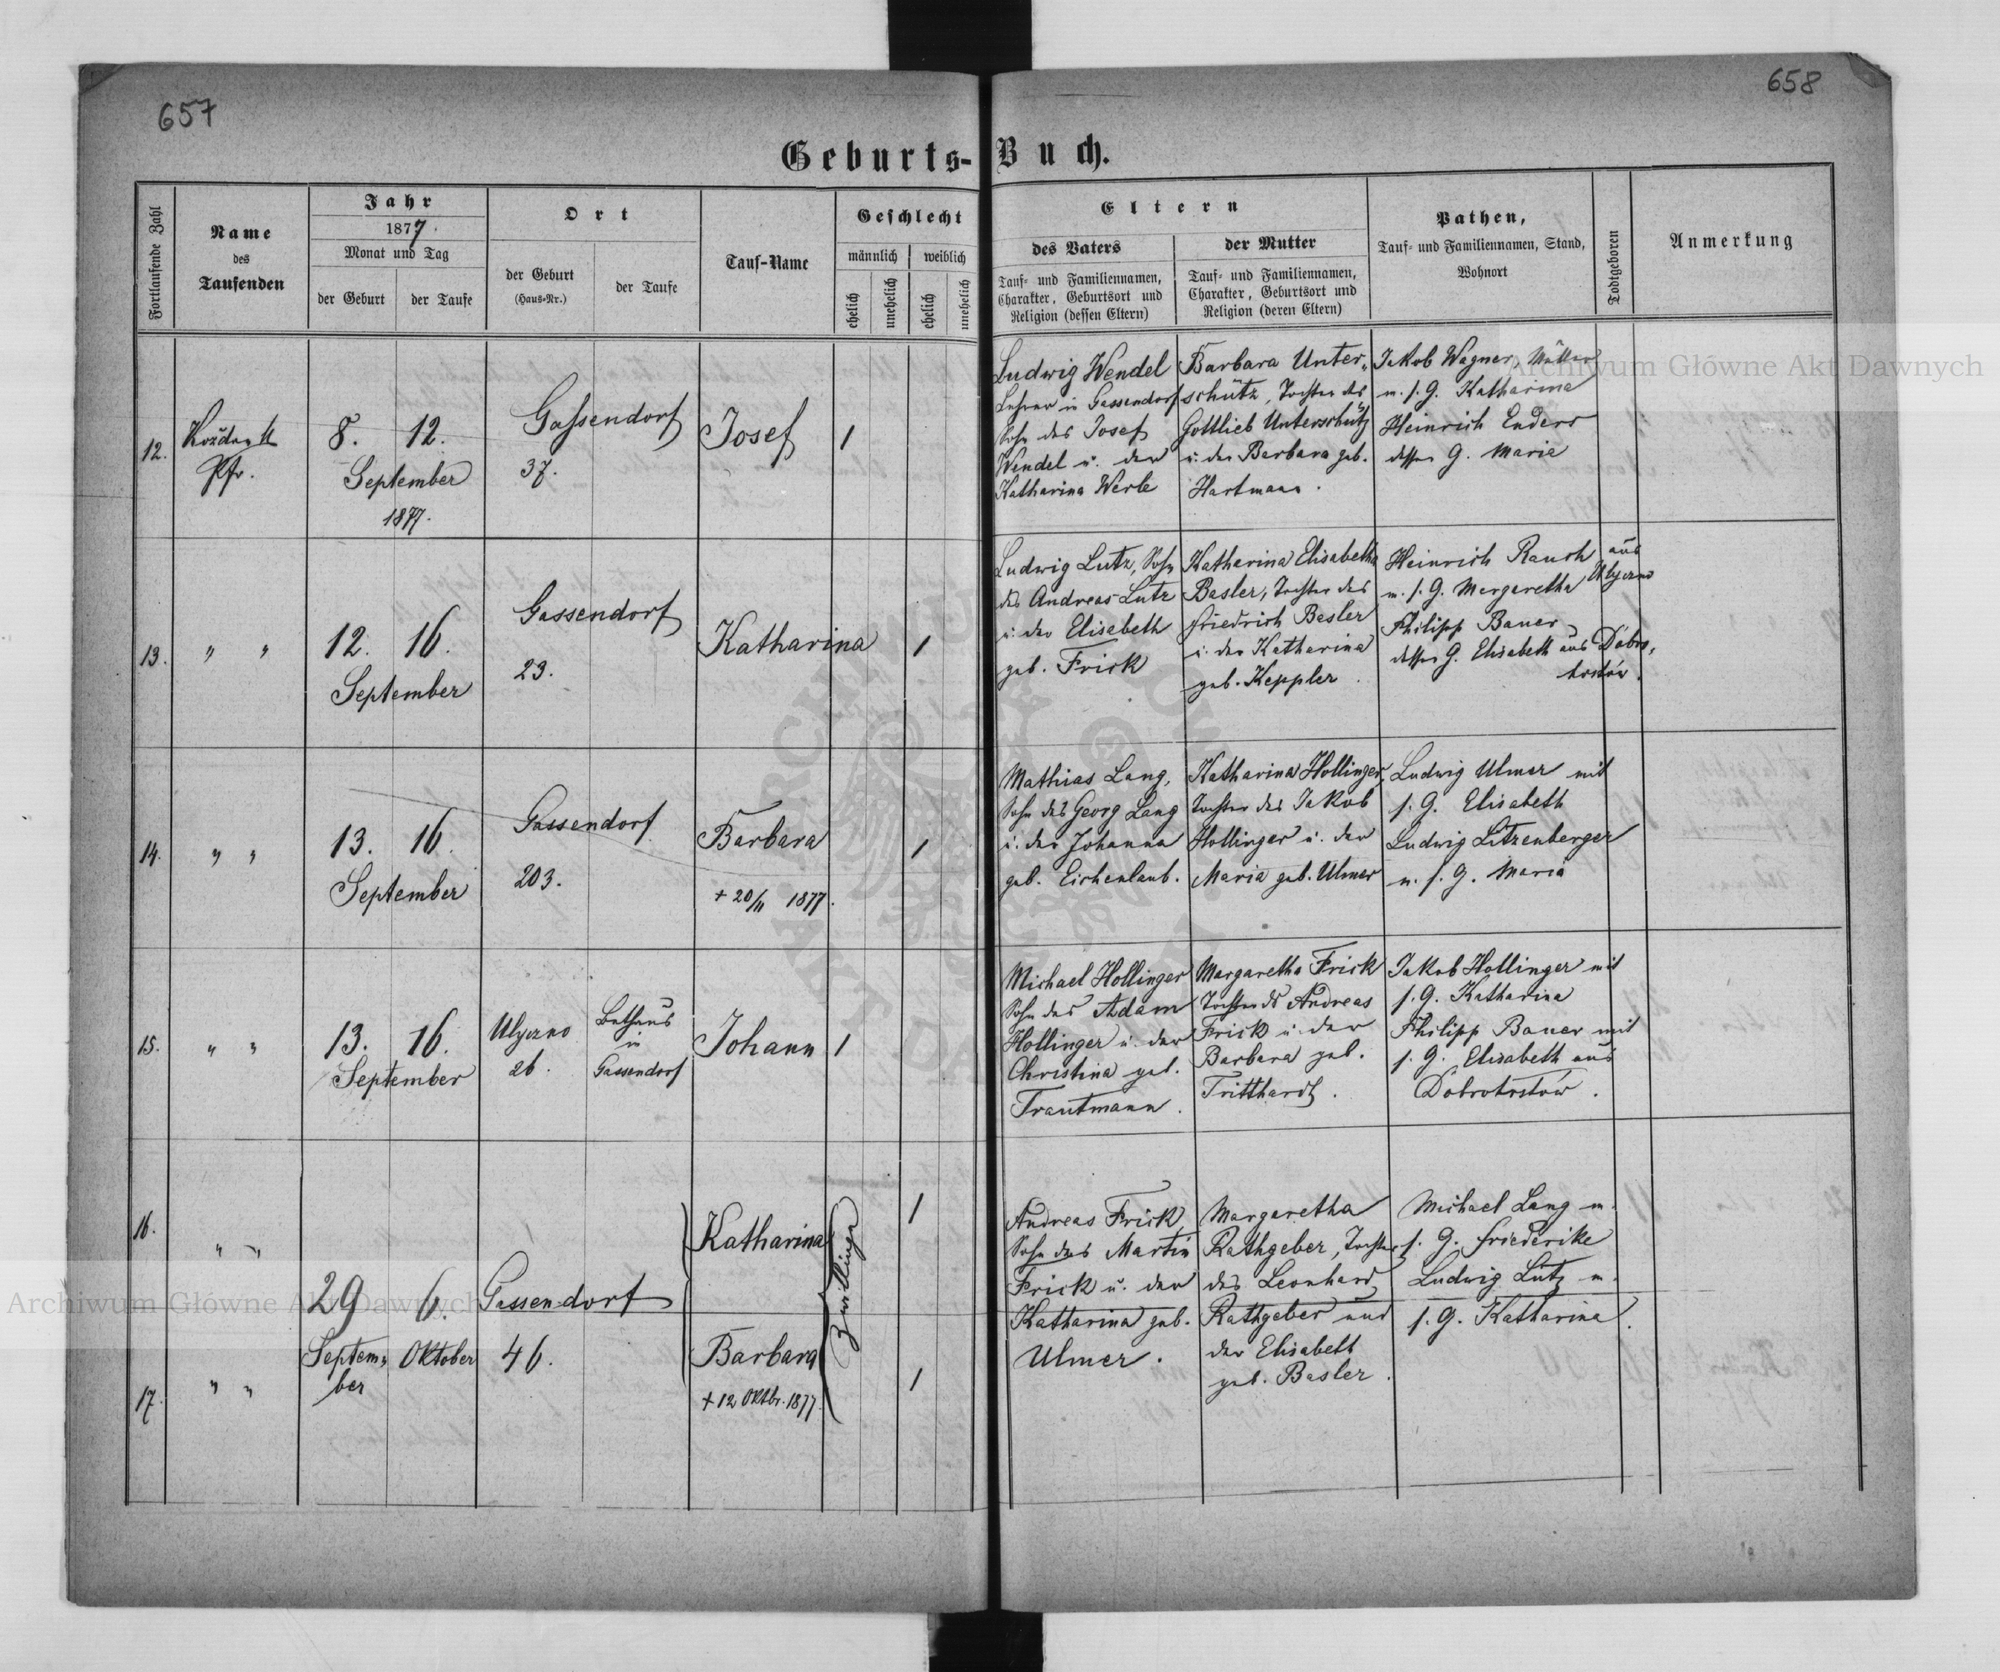 657
658
Geburts-Buch.
Fortlaufende Zahl
Name
des
Taufenden
Jahr
1877.
Monat und Tag
der Geburt
der Taufe
Ort
der Geburt
(Haus-Nr.)
der Taufe
Tauf-Name
Geschlecht
männlich
weiblich
ehelich
unehelich
ehelich
unehelich
Eltern
des Vaters
Tauf- und Familiennamen,
Charakter, Geburtsort und
Religion (dessen Eltern)
der Mutter
Tauf- und Familiennamen,
Charakter, Geburtsort und
Religion (deren Eltern)
Pathen,
Tauf- und Familiennamen, Stand,
Wohnort
Todtgeboren
Anmerkung
12.
Pfr.
8.
12.
September
1877.
Gassendorf
37.
Josef
1
Ludwig Wendel
Lehrer in Gassendorf
Sohn des Josef
Wendel u. der
Katharina Werle
Barbara Unter„
schütz, Tochter des
Gottlieb Unterschütz
u. der Barbara geb.
Hartmann.
Jakob Wagner, Müller
m. s. G. Katharina
Heinrich Enders
dessen G. Marie
13.
" "
12.
16.
September
Gassendorf
23.
Katharina
1
Ludwig Lutz, Sohn
des Andreas Lutz
u. der Elisabeth
geb. Frick
Katharina Elisabetha
Basler, Tochter des
Friedrich Basler
u. der Katharina
geb. Keppler.
Heinrich Rauch aus
m. s. G. Margaretha Ulyczno
Philipp Bauer
dessen G. Elisabeth aus Dobro„
14.
" "
13.
16.
September
Gassendorf
203.
Barbara
+ 20/11 1877.
1
Mathias Lang,
Sohn des Georg Lang
u. der Johanna
geb. Eichenlaub.
Katharina Hollinger,
Tochter des Jakob
Hollinger u. der
Maria geb. Ulmer
Ludwig Ulmer mit
s. G. Elisabeth
Ludwig Litzenberger
m. s. G. Maria
15.
" "
13.
16.
September
Ulyczno
26.
Bethaus
in
Gassendorf
Johann
1
Michael Hollinger
Sohn des Adam
Hollinger u. der
Christina geb.
Trautmann.
Margaretha Frick
Tochter ds Andreas
Frick u. der
Barbara geb.
Tritthardt.
Jakob Hollinger mit
s. G. Katharina
Philipp Bauer mit
s. G. Elisabeth aus
16.
" "
Katharina
1
29
6.
Septem„
ber
Oktober
Gassendorf
46.
Zwillinge
17.
" "
Barbara
+ 12 Oktbr. 1877.
1
Andreas Frick,
Sohn des Martin
Frick u. der
Katharina geb.
Ulmer.
Margaretha
Rathgeber, Tochter
des Leonhard
Rathgeber und
der Elisabeth
geb. Basler.
Michael Lang m.
s. G. Friederike
Ludwig Lutz m.
s. G. Katharina.
Archiwum Główne Akt Dawnych
Archiwum Główne Akt Dawnych